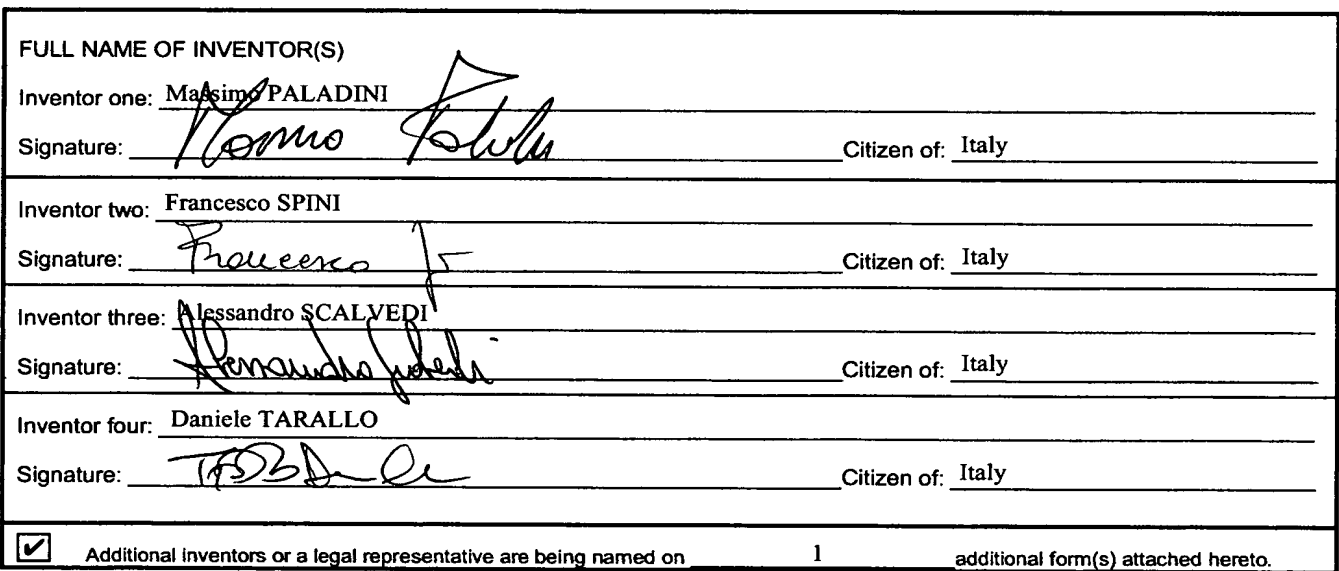 FULL NAME OF INVENTOR(S)
Inventor one: Massimo PALADINI
Signature: Citizen of: Italy
Inventor two: Francesco SPINI
Signature: Francesco Citizen of: Italy
Inventor three: Alessandro SCALVEDI
Signature: Alessandro Citizen of: Italy
Inventor four: Daniele TARALLO
Signature: Citizen of: Italy
✔ Additional inventors or a legal representative are being named on 1 additional form(s) attached hereto.